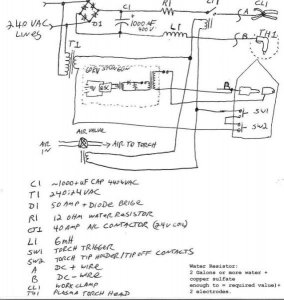 R1
L1
A
CL1
240 VAC
LINES
D1
C1
1000uF
400V
L1
B
TH1
T1
B
SW1
SW2
AIR VALVE
AIR
IN
AIR TO TORCH
C1 ~1000uF CAP 440VAC
T1 240:24VAC
D1 50 AMP + DIODE BRIGE
R1 12 OHM WATER RESISTOR
CT1 40AMP AC CONTACTOR (24V COIL)
L1 6mH
SW1 TORCH TRIGGER
SW2 TORCH TIP HOLDER/TIP OFF CONTACTS
A DC + WIRE
B DC - WIRE
CL1 WORK CLAMP
TH1 PLASMA TORCH HEAD
Water Resistor:
2 Galons or more water +
copper sulfate
enough to = required value)+
2 electrodes.